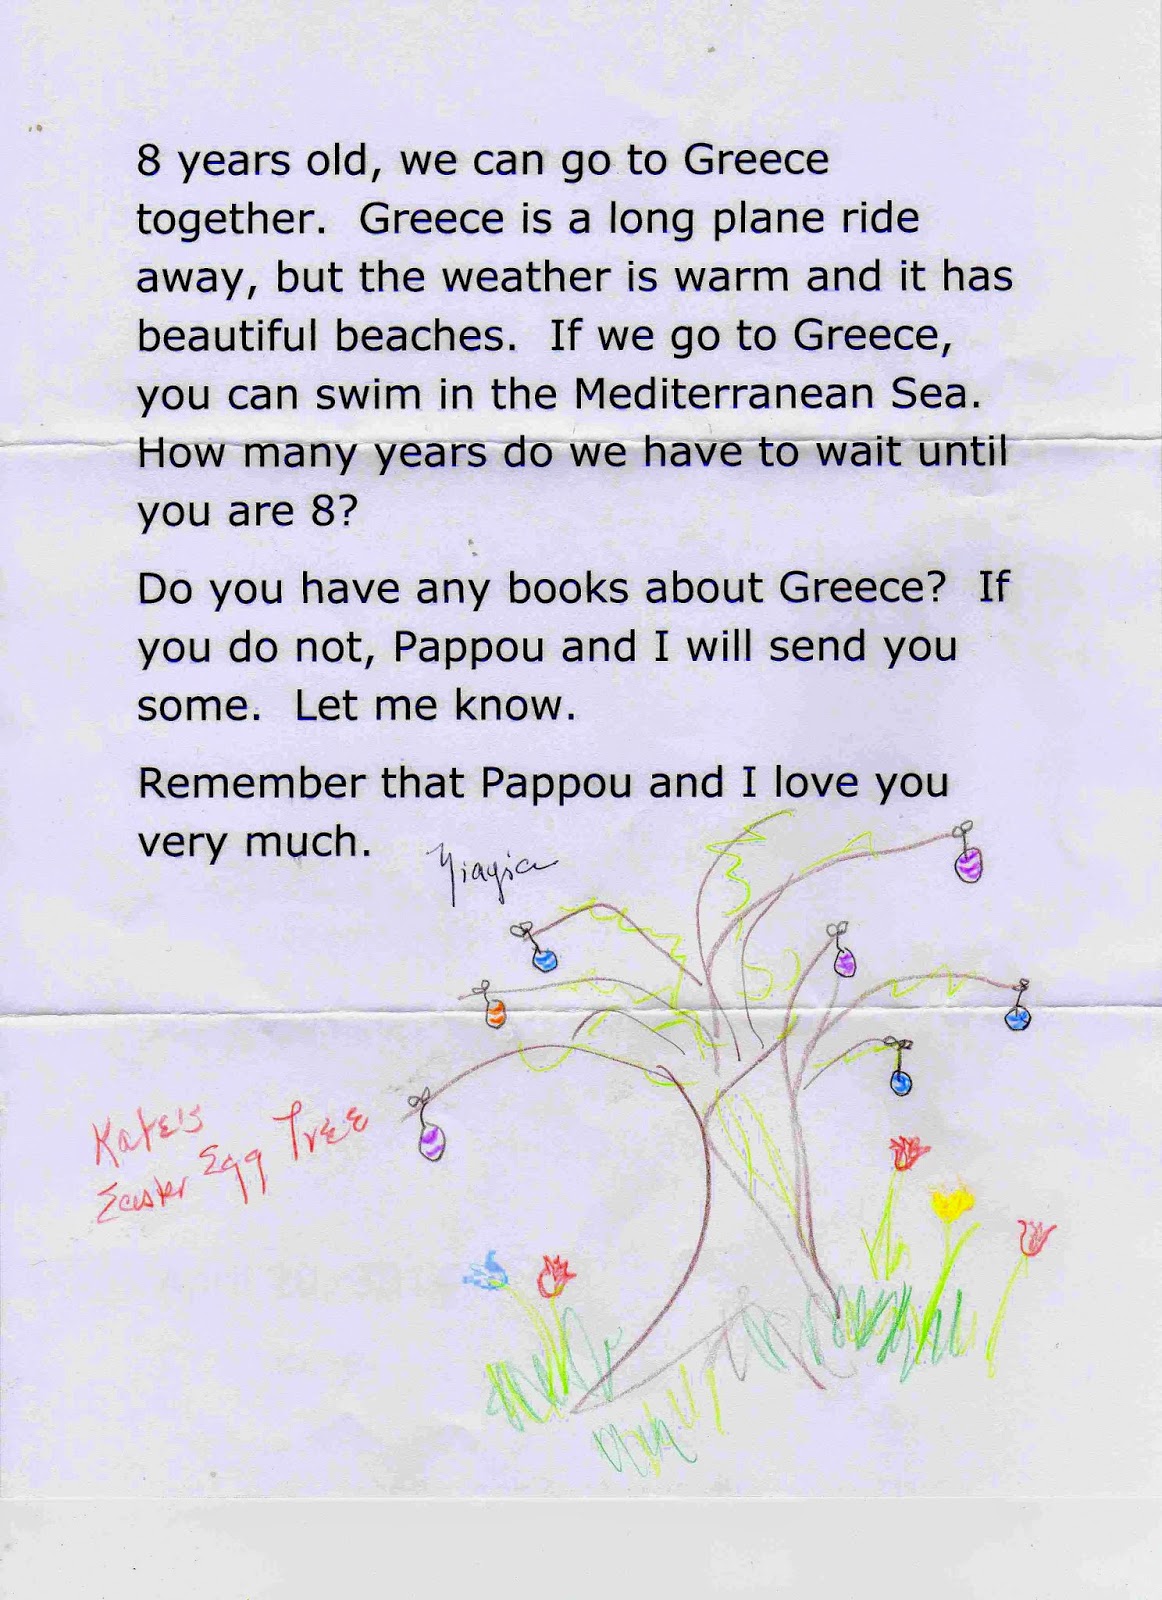 8 years old, we can go to Greece
together.  Greece is a long plane ride
away, but the weather is warm and it has
beautiful beaches.  If we go to Greece,
you can swim in the Mediterranean Sea.
How many years do we have to wait until
you are 8?
Do you have any books about Greece?  If
you do not, Pappou and I will send you
some.  Let me know.
Remember that Pappou and I love you
very much.
Yiayia
Kate's
Easter Egg Tree